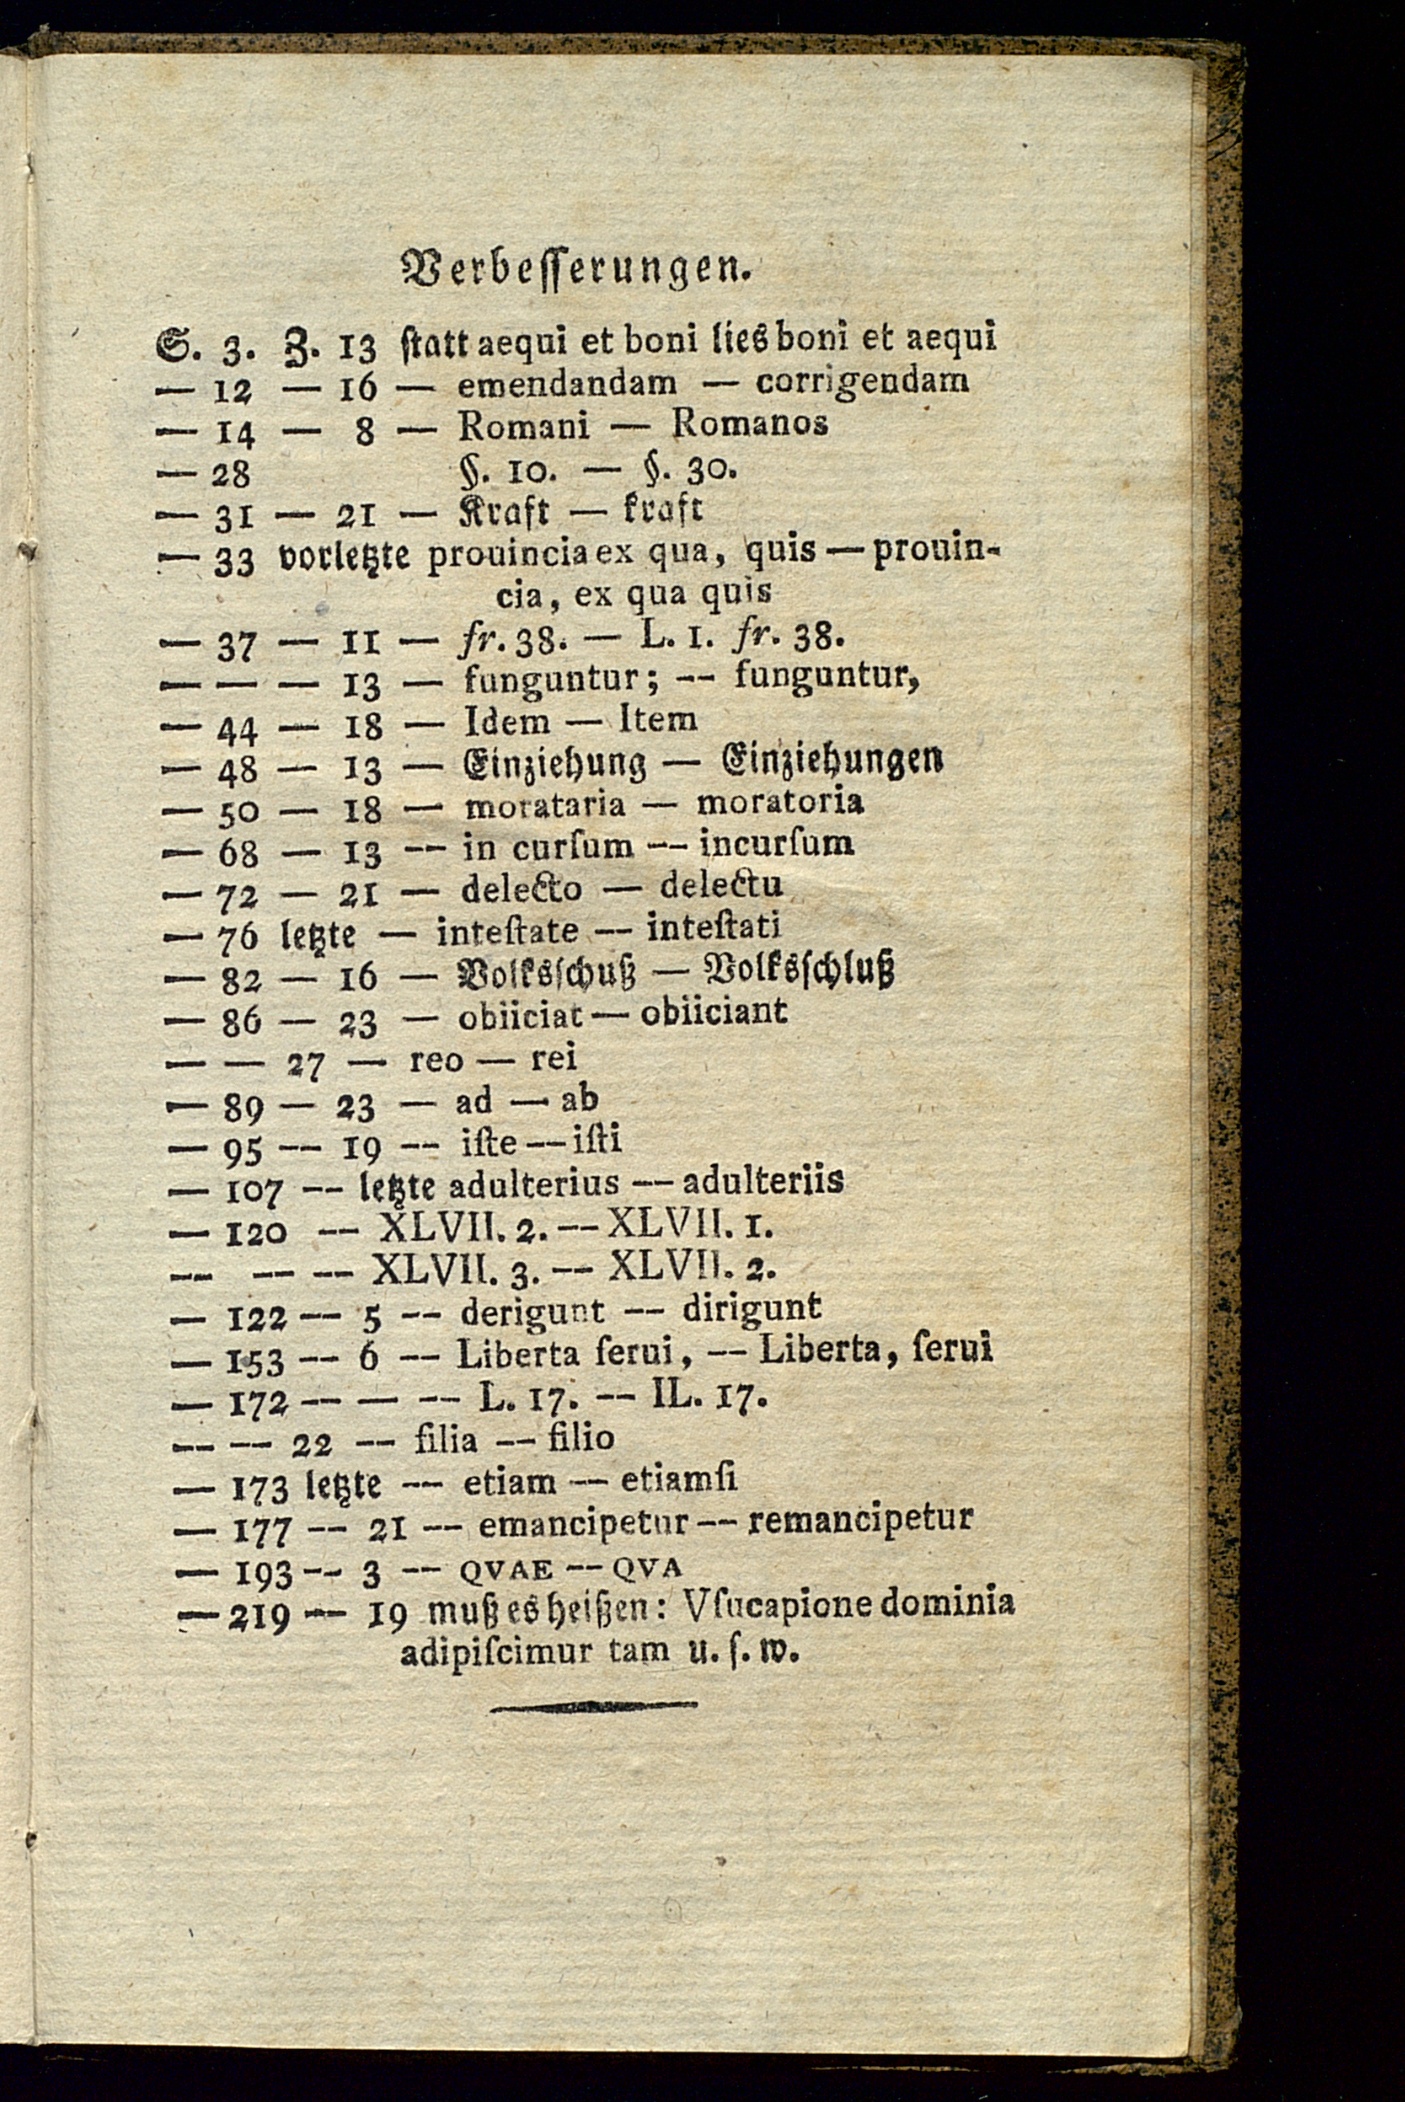 Verbeſſerungen.
S. 3. Z. 13 ſtatt aequi et boni lies boni et aequi
— 12 — 16 — emendandam — corrigendam
— 14 — 8 — Romani — Romanos
— 28 §. 10. — §. 30.
— 31 — 21 — Kraft — kraft
— 33 vorletzte prouincia ex qua, quis — prouin-
cia, ex qua quis
— 37 — 11 — fr. 38. — L. 1. fr. 38.
— — — 13 — funguntur; — funguntur,
— 44 — 18 — Idem — Item
— 48 — 13 — Einziehung — Einziehungen
— 50 — 18 — morataria — moratoria
— 68 — 13 — in curſum — incurſum
— 72 — 21 — delecto — delectu
— 76 letzte — inteſtate — inteſtati
— 82 — 16 — Volksſchuß — Volksſchluß
— 86 — 23 — obiiciat — obiiciant
— — 27 — reo — rei
— 89 — 23 — ad — ab
— 95 — 19 — iſte — iſti
— 107 — letzte adulterius — adulteriis
— 120 — XLVII. 2. — XLVII. 1.
— — — XLVII. 3. — XLVII. 2.
— 122 — 5 — derigunt — dirigunt
— 153 — 6 — Liberta ſerui, — Liberta, ſerui
— 172 — — — L. 17. — IL. 17.
— — 22 — filia — filio
— 173 letzte — etiam — etiamſi
— 177 — 21 — emancipetur — remancipetur
— 193 — 3 — QVAE — QVA
— 219 — 19 muß es heißen: Vſucapione dominia
adipiſcimur tam u. ſ. w.